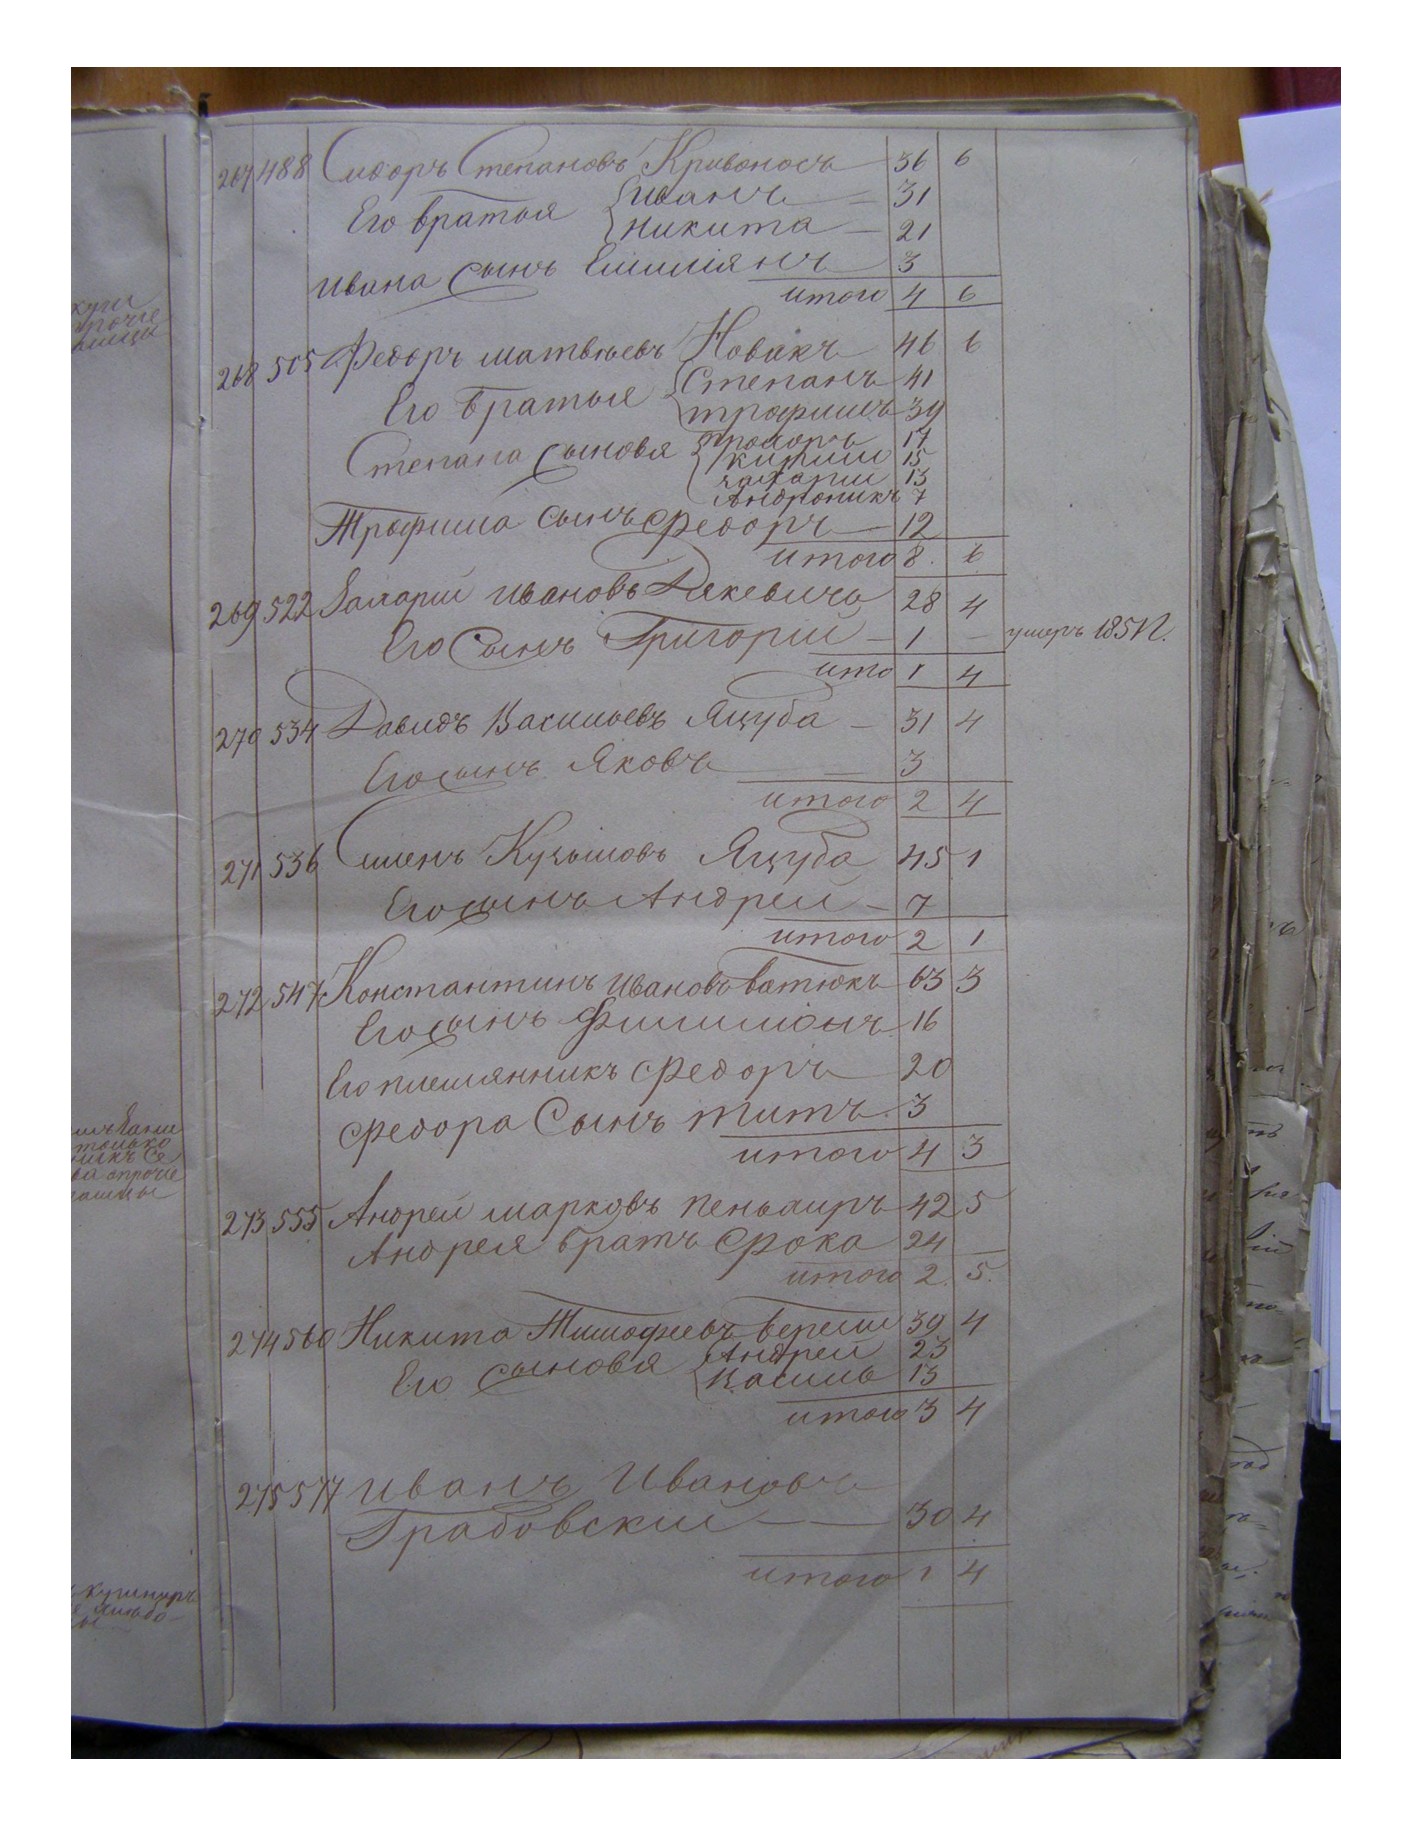 267 488 Сидоръ Степановъ Кривоносъ 36 6
Его братья Иванъ 31
Никита 21
Ивана сынъ Емилиянъ 3
итого 4 6
268 505 Федоръ Матвѣевъ Новакъ 46 6
Его братья Степанъ 41
Трофимъ 39
Степана сыновья Прохоръ 17
Кирили 15
Захарии 13
Андроникъ 7
Трофима сынъ Федоръ 12
итого 8. 6
269 522 Ивановъ 28 4
Его Сынъ Григорий 1 умеръ 1851г.
ито 1 4
270 534 Давидъ Васильевъ Яцуба 31 4
Его сынъ Яковъ 3
итого 2 4
271 536 Семенъ Кузьмовъ Яцуба 45 1
Его сынъ Андрей 7
итого 2 1
272 547 Константинъ Ивановъ Ватюкъ 63 3
Его сынъ Филимонъ 16
Его племянникъ Федоръ 20
Федора Сынъ Титъ 3
итого 4 3
273 555 Андрей Марковъ 42 5
Андрея братъ Фока 24
итого 2. 5.
274 560 Никита Тимофеевъ 39 4
Его сыновья Андрей 23
Василь 13
итого 3 4
275 577 Иванъ Ивановъ
Грабовский 30 4
итого 1 4